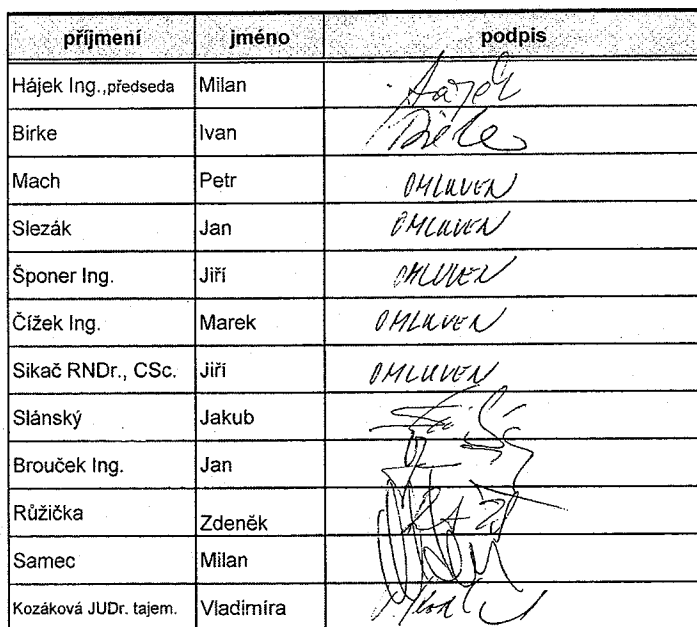 příjmení jméno podpis
Hájek Ing.,předseda Milan Hájek
Birke Ivan Birke
Mach Petr OMLUVEN
Slezák Jan OMLUVEN
Šponer Ing. Jiří OMLUVEN
Čížek Ing. Marek OMLUVEN
Sikač RNDr., CSc. Jiří OMLUVEN
Slánský Jakub
Brouček Ing. Jan
Růžička Zdeněk
Samec Milan
Kozáková JUDr. tajem. Vladimíra